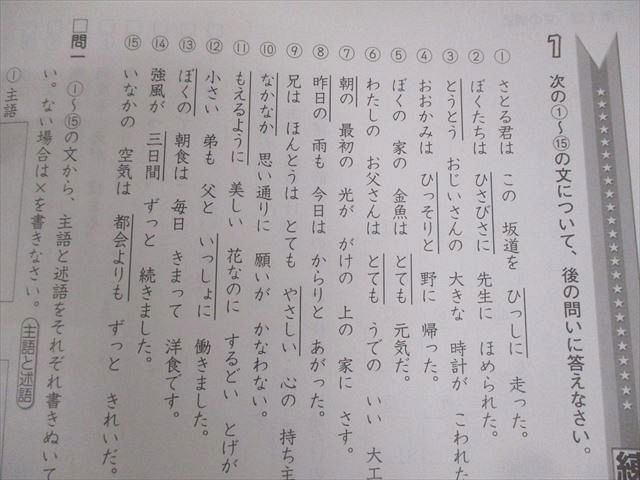 1 次の①〜⑮の文について、後の問いに答えなさい。
① さとる君は この 坂道を ひっしに 走った。
② ぼくたちは ひさびさに 先生に ほめられた。
③ とうとう おじいさんの 大きな 時計が こわれた
④ おおかみは ひっそりと 野に 帰った。
⑤ ぼくの 家の 金魚は とても 元気だ。
⑥ わたしの お父さんは とても うでの いい 大工
⑦ 朝の 最初の 光が がけの 上の 家に さす。
⑧ 昨日の 雨も 今日は からりと あがった。
⑨ 兄は ほんとうは とても やさしい 心の 持ち主
⑩ なかなか 思い通りに 願いが かなわない。
⑪ もえるように 美しい 花なのに するどい とげが
⑫ 小さい 弟も 父と いっしょに 働きました。
⑬ ぼくの 朝食は 毎日 きまって 洋食です。
⑭ 強風が 三日間 ずっと 続きました。
⑮ いなかの 空気は 都会よりも ずっと きれいだ。
□問一 ①〜⑮の文から、主語と述語をそれぞれ書きぬいて
い。ない場合は×を書きなさい。 主語と述語
① 主語